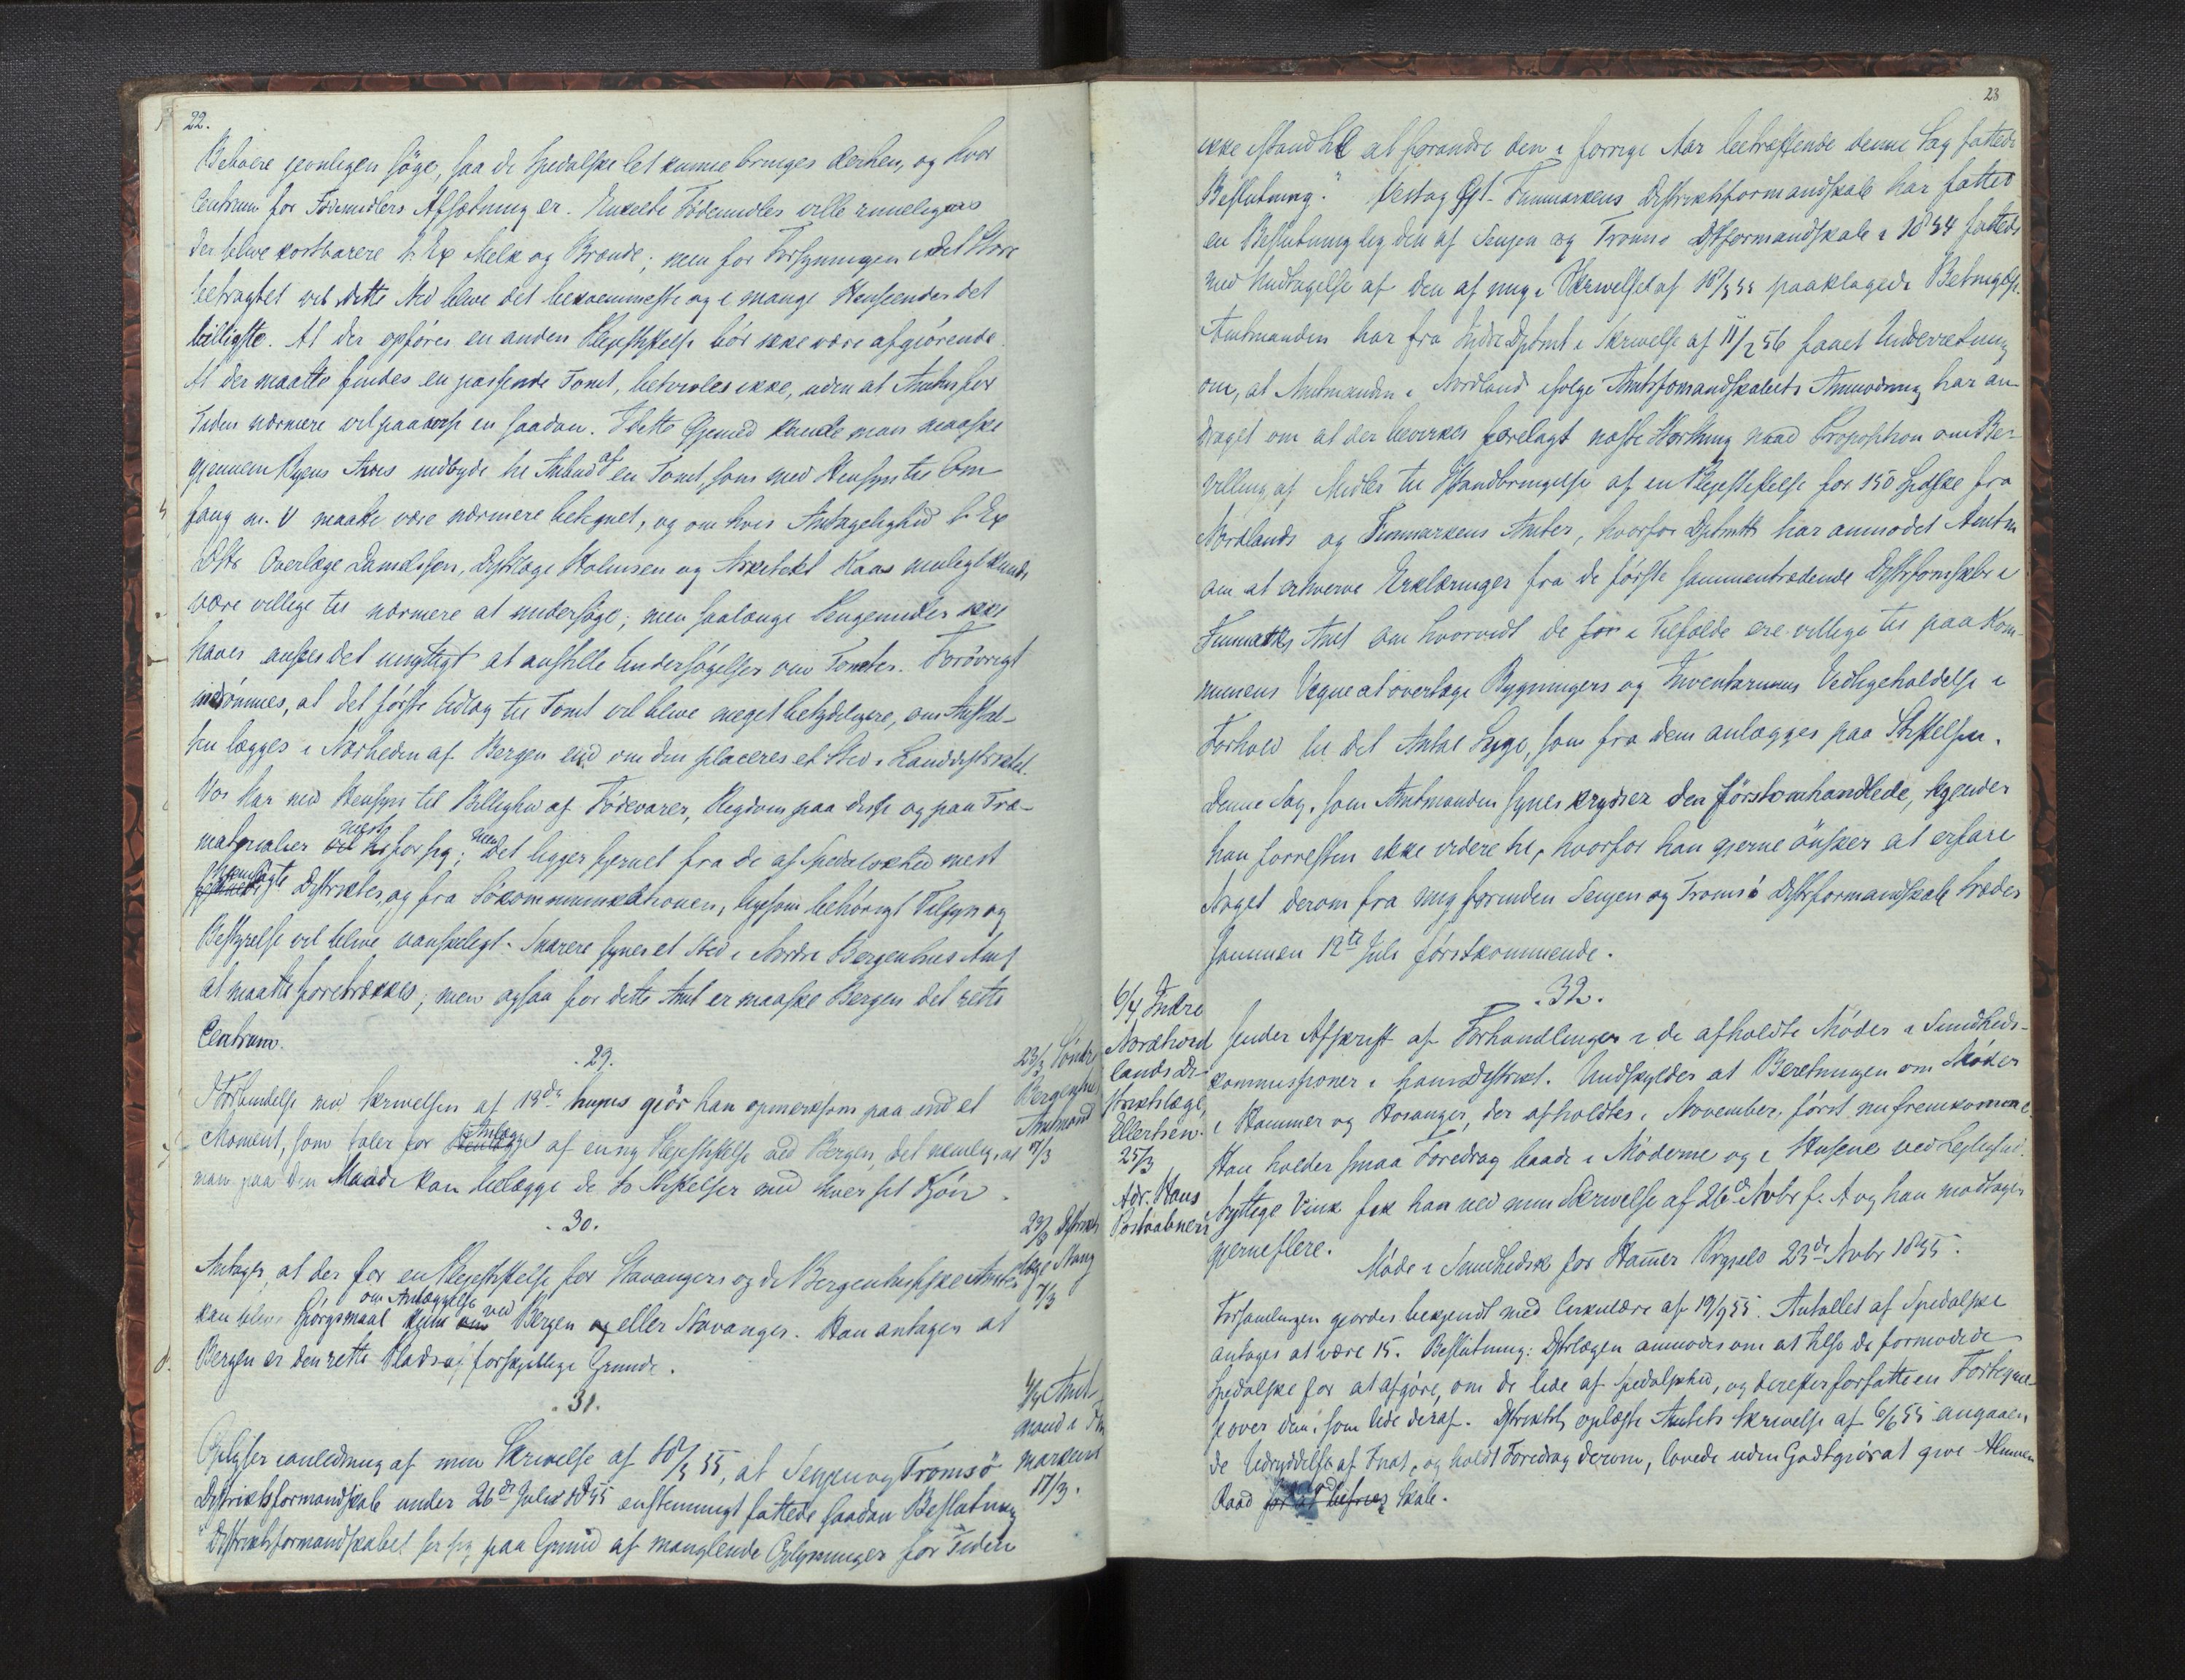 22.
Beboere jevnligen söge, saa de Spedalske let kunne bringes derhen, og hvor
Centrum for Födemidlers Afsætning er. Enkelte Födemidler ville rimeligvis
der blive kostbarere t. Ex Melk og Brænde; men for Forsyningen i det Hele
betragtet vil dette Sted blive det bekvemmeste og i mange Henseender det
billigste. At der opföres en anden Plejestiftelse bör ikke være afgjörende.
At der maatte findes en passende Tomt, betvivles ikke, uden at Amtm. for
Tiden nærmere vil paavise en saadan. I dette Öjemed kunde man maaske
gjennem Byens Avis indbyde til Anbud af en Tomt, som med Hensyn til Om-
fang m. V maatte være nærmere betegnet, og om hvis Antagelighed t. Ex
DHr. Overlæge Danielssen, Distrlæge Holmsen og Arkitekt Kaas muligt kunde
være villige til nærmere at undersöge; men saalænge Pengemidler ikke
haves ansees det unyttigt at anstille Undersögelser om Tomter. Forövrigt
indrömmes, at det förste Udlæg til Tomt vil blive meget betydeligere, om Anstal-
ten lægges i Nærheden af Bergen end om den placeres et Sted i Landdistriktet.
Vos har med Hensyn til Billighed af Födevarer, Rigdom paa disse og paa Træ-
materialier mest for sig; men det ligger fjernet fra de af Spedalskhed mest
hjemsögte Distrikter, og fra Sökommunikationen, ligesom behörigt Tilsyn og
Bestyrelse vil blive vanskeligt. Snarere synes et Sted i Nordre Bergenhus Amt
at maatte foretrækkes; men ogsaa for dette Amt er maaske Bergen det rette
Centrum.
29.
23/3 Söndre
Bergenhus
Amtmand
17/3
I Forbindelse med Skrivelsen af 13de hujus gjör han opmerksom paa end et
Moment, som taler for Anlægget af en ny Plejestiftelse ved Bergen, det nemlig, at
man paa den Maade kan belægge de to Stiftelser med hver sit Kjön.
30.
23/3 Distrikts
læge Stang
7/3
Antager, at der for en Plejestiftelse for Stavangers og de Bergenhusiske Amter
kan blive Spörgsmaal kun om Anlæggelse ved Bergen eller Stavanger. Han antager at
Bergen er den rette Plads af forskjellige Grunde.
31.
4/4 Amt-
mand i Fin
markens
17/3.
Oplyser i anledning af min Skrivelse af 18/3 55, at Senjen og Tromsö
Distriktsformandskab under 26de Juli 1855 enstemmigt fattede saadan Beslutning
"Distriktsformandskabet ser sig paa Grund af manglende Oplysninger for Tiden
23
ikke istand til at forandre den i forrige Aar betræffende denne Sag fattede
Beslutning." Vest og Öst-Finmarkens Distriktsformandskab har fattet
en Beslutning lig den af Senjen og Tromsö Dstformandskab i 1854 fattede
med Undtagelse af den af mig i Skrivelse af 18/3 55 paaklagede Betingelse.
Amtmanden har fra Indre Dptmt i Skrivelse af 11/2 56 faaet Underretning
om, at Amtmanden i Nordland ifölge Amtsformandskabets Anmodning har an-
draget om at der bevirkes forelagt næste Storthing naad. Proposition om Be-
villing af Midler til Istandbringelse af en Plejestiftelse for 150 Spedlske fra
Nordlands og Finmarkens Amter, hvorfor Dptmtt har anmodet Amtm
om at erhverve Erklæringer fra de förste sammentrædende Distrformskber i
Finmarkens Amt om hvorvidt de i Tilfælde ere villige til paa Kom-
munens Vegne at overtage Bygningers og Inventariums Vedligeholdelse i
Forhold til det Antal Syge, som fra dem anlægges paa Stiftelsen.
Denne Sag, som Amtmanden synes krydser den förstomhandlede, kjender
han forresten ikke videre til, hvorfor han gjerne önsker at erfare
Noget derom fra mig forinden Senjen og Tromsö Distrformandskab træder
sammen 12te Juli förstkommende.
32.
6/4 Indre
Nordhord
lands Di-
striktslæge,
Ellertsen.
25/3
Adr. Haus
Postaabneri
Sender Afskrift af Forhandlinger i de afholdte Möder i Sundheds-
kommissioner i hans Distrikt. Undskylder at Beretningen om Möder
i Hammer og Hosanger, der afholdtes i November, först nu fremkomme.
Han holder smaa Foredrag baade i Möderne og i Husene ved Lejlighed.
Nyttige Vink fik han ved min Skrivelse af 26de Novbr f. A og han modtager
gjerne flere.
Möde i Sundhedsk for Ham̄er Prgjeld 23de Novbr 1855.
Forsamlingen gjordes bekjendt med Cirkulære af 19/9 55. Antallet af Spedalske
antages at være 15. Beslutning: Dstrlægen anmodes om at tilse de formodede
Spedalske for at afgöre, om de lide af Spedalskhed, og derefter forfatte en Fortegnel-
se over dem, som lide deraf. Distriktsl, oplæste Amtets Skrivelse af 6/6 55 angaaen
de Udryddelse af Fnat, og holdt Foredrag derom, lovede uden Godtgjörat give Almuen
Raad for at befries Skab.